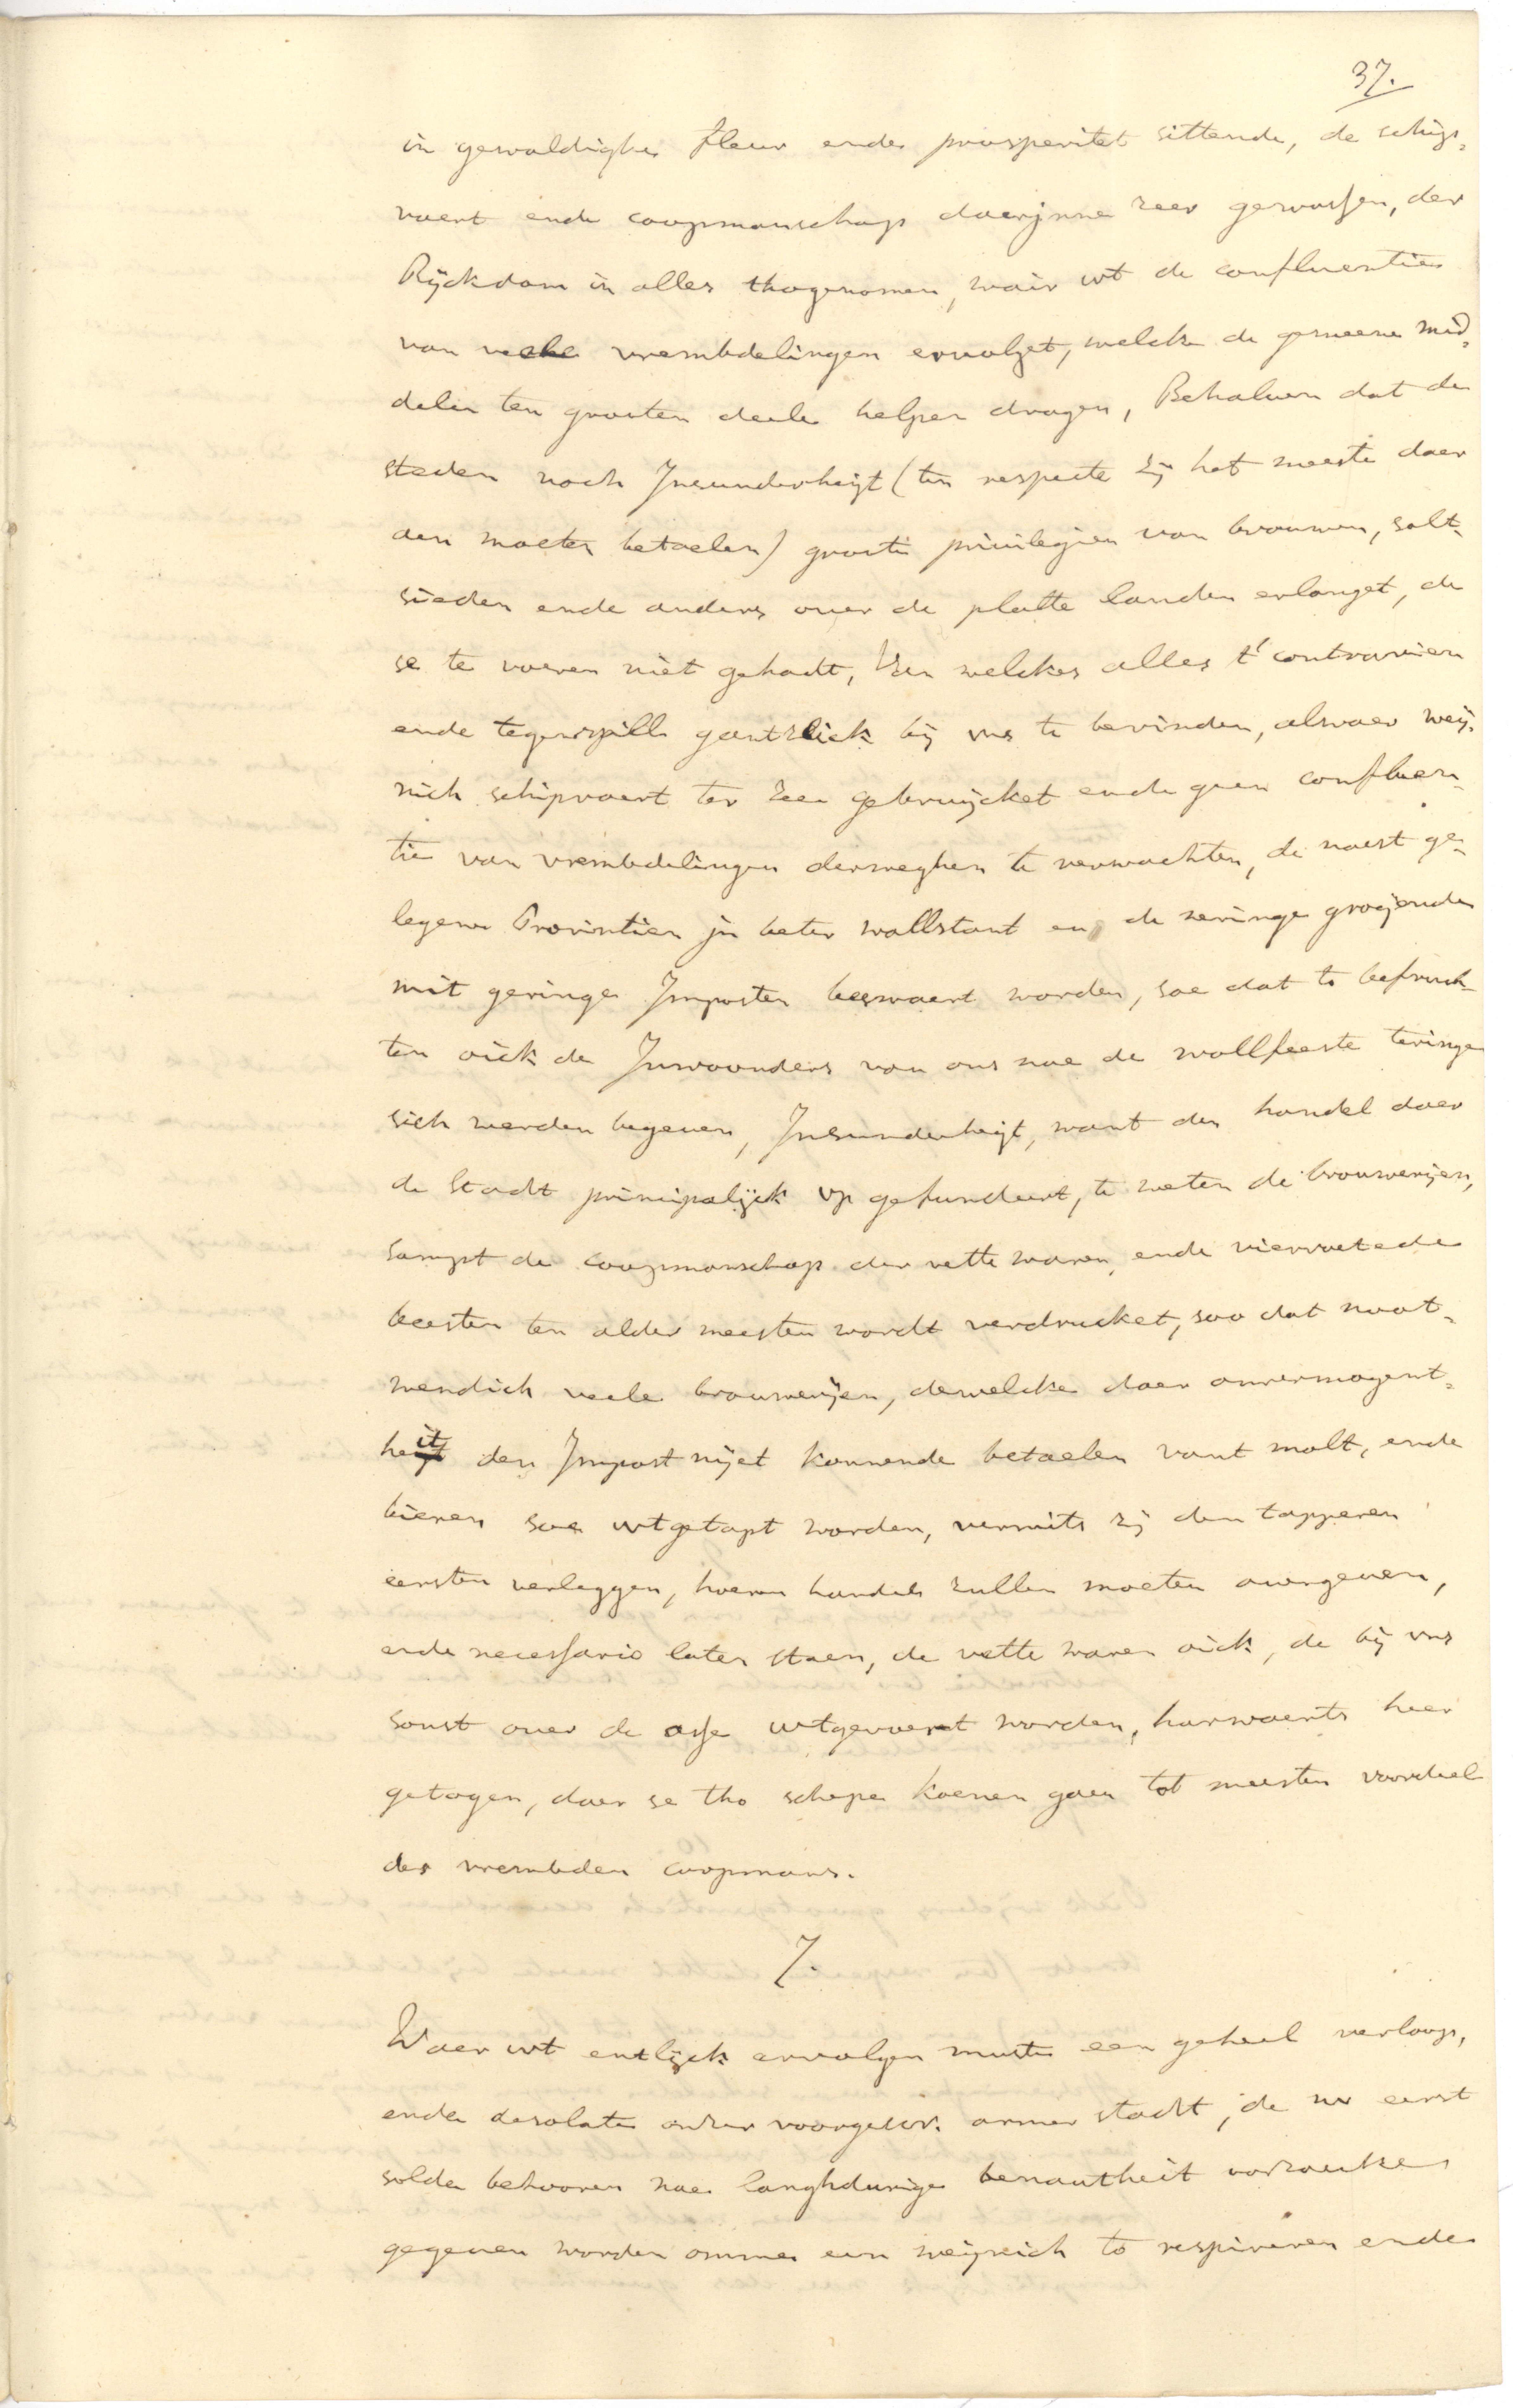 37.
in gewaldighe fleur ende prosperitet sittende, de schip=
vaert ende coopmanschap daerjnne zeer gewassen, der
Rijckdom in alles thogenomen, wair wt de confluentie
van veele vrembdelingen ervolget, welcke de gemeene mid=
delen ten grooten deele helpen dragen, Behaluen dat de
steden noch Jnsunderheijt (ten respecte zij het meeste daer
aen moeten betaelen) groote priuilegien van brouwen, solt=
sieden ende anders ouer de platte landen erlanget, de
se te voeren niet gehadt, Van welckes alles t' contrarien
ende tegenspill gantzlick bij vns te bevinden, alwaer weij=
nich schipvaert ter Zee gebruijcket ende geen confluen=
tie van vrembdelingen derweghen te verwachten, de naest ge=
legene Provintien jn beter wallstant en de neringe groijende
mit geringe Jmposten beswaert worden, soe dat to befruch=
ten oick de Jnwoonders van ons nae de wollfeeste teringe
sich werden begeuen, Jnsunderheijt, want den handel daer
de Stadt principalijck vp gefundeert, te weten de brouwerijen,
sampt de coopmanschap der vette waren, ende viervoetede
beesten ten alder meesten wordt verdrucket, soo dat noot=
wendich veele brouwerijen, dewelcke daer onvermogent=
heit den Jmpost nijet konnende betaelen vant malt, ende
bieren soe wtgetapt worden, vermits zij den tapperen
eersten verleggen, hoeren handel zullen moeten ouergeuen,
ende necessario laten staen, de vette waren oick, de bij vns
sonst ouer de asse wtgevoert worden, harwaerts heer
getogen, daer se tho schepe koenen gaen tot meesten voordeel
der vrembden coopmans.
7.
Waer wt entlijck ervolgen muste een geheel verloop,
ende desolatie onzer voorgeser. armer stadt, de nv eerst
solde behooren nae langhdurige benautheit oorzaecke
gegeuen worden omme een weijnich to respireren ende